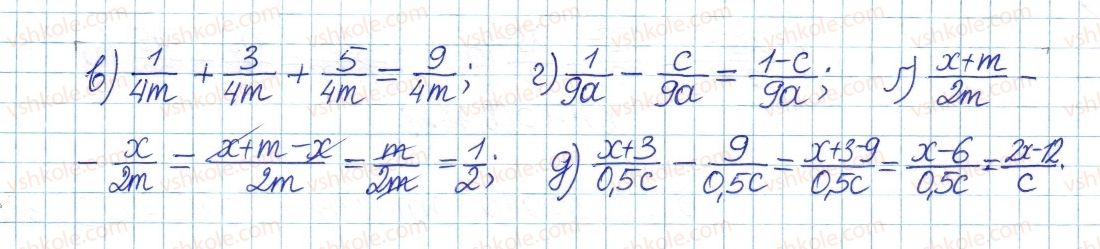 в) 1/4m + 3/4m + 5/4m = 9/4m; г) 1/9a - c/9a = 1-c/9a; ґ) x+m/2m -
- x/2m = x+m-x/2m = m/2m = 1/2; д) x+3/0,5c - 9/0,5c = x+3-9/0,5c = x-6/0,5c = 2x-12/c.